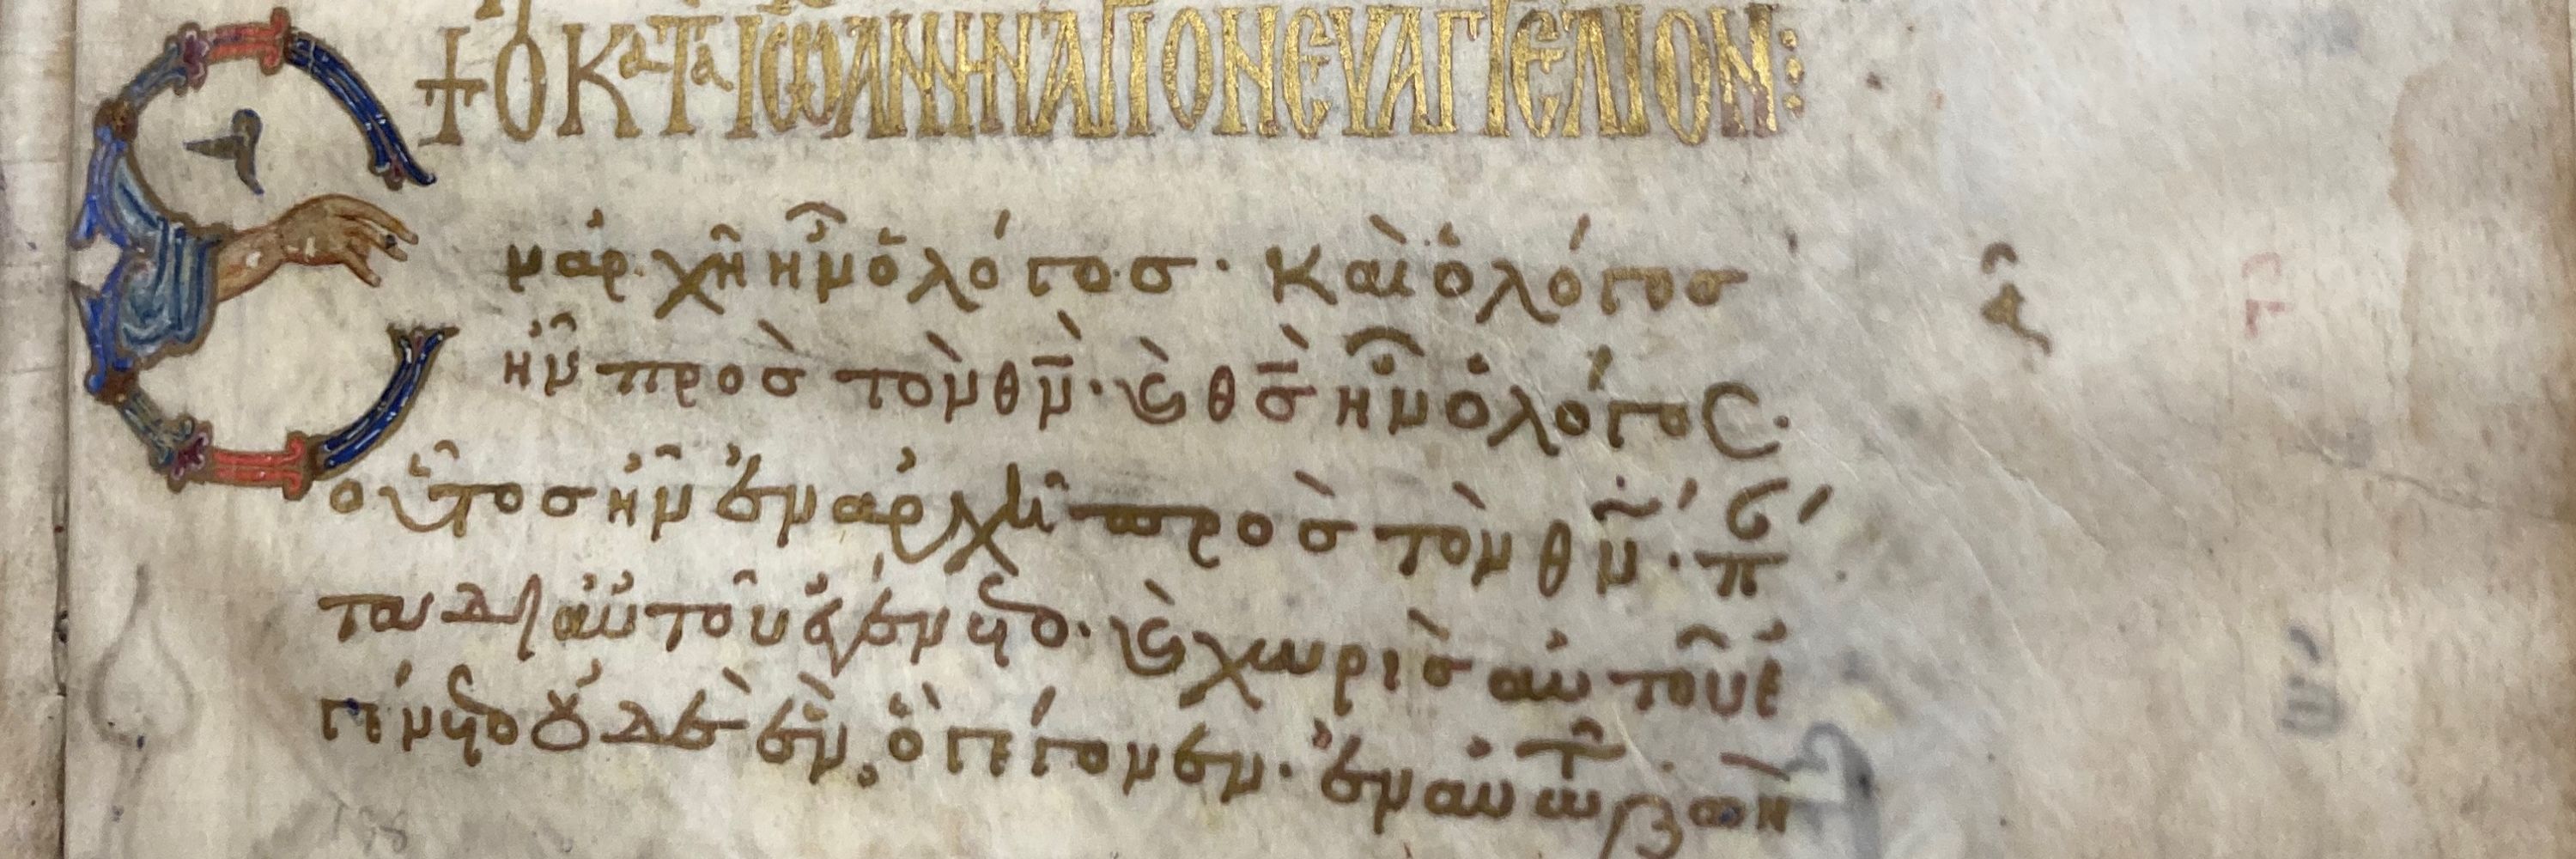 + ὁ κατὰ Ἰωάννην ἅγιον εὐαγγέλιον:
Ἐν ἀρχῆ ἦν ὁ λόγος· καὶ ὁ λόγος
ἦν πρὸς τὸν θν̅· καὶ θς̅ ἦν ὁ λόγος·
οὗτος ἦν ἐν ἀρχῆ πρὸς τὸν θν̅· πά
τα δι αὐτοῦ ἐγένετο· καὶ χωρὶς αὐτοῦ ἐ
γένετο οὐδὲ ἕν, ὃ γέγονεν· ἐν αὐτῶ ζωὴ
α